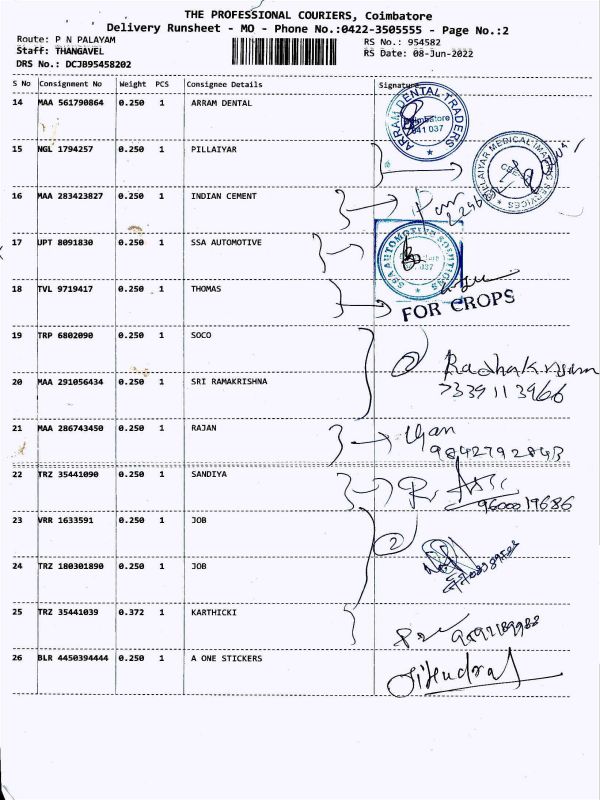 THE PROFESSIONAL COURIERS, Coimbatore
Delivery Runsheet - MO - Phone No.:0422-3505555 - Page No.:2
Route: P N PALAYAM
RS No.: 954582
Staff: THANGAVEL
RS Date: 08-Jun-2022
DRS No.: DCJB95458202
S No Consignment No Weight PCS Consignee Details Signature
14 MAA 561790864 0.250 1 ARRAM DENTAL
ARRAM DENTAL TRADERS
Coimbatore
641 037
15 NGL 1794257 0.250 1 PILLAIYAR
PILLAIYAR MEDICAL IMAGING SERVICES
16 MAA 283423827 0.250 1 INDIAN CEMENT
17 UPT 8091830 0.250 1 SSA AUTOMOTIVE
SSA AUTOMOTIVE SOLUTIONS
18 TVL 9719417 0.250 1 THOMAS
FOR CROPS
19 TRP 6802090 0.250 1 SOCO
2 Radhakrishnan
7339113966
20 MAA 291056434 0.250 1 SRI RAMAKRISHNA
21 MAA 286743450 0.250 1 RAJAN
9842792843
22 TRZ 35441090 0.250 1 SANDIYA
9600019686
23 VRR 1633591 0.250 1 JOB
2
24 TRZ 180301890 0.250 1 JOB
25 TRZ 35441039 0.372 1 KARTHICKI
26 BLR 4450394444 0.250 1 A ONE STICKERS
Jitendra